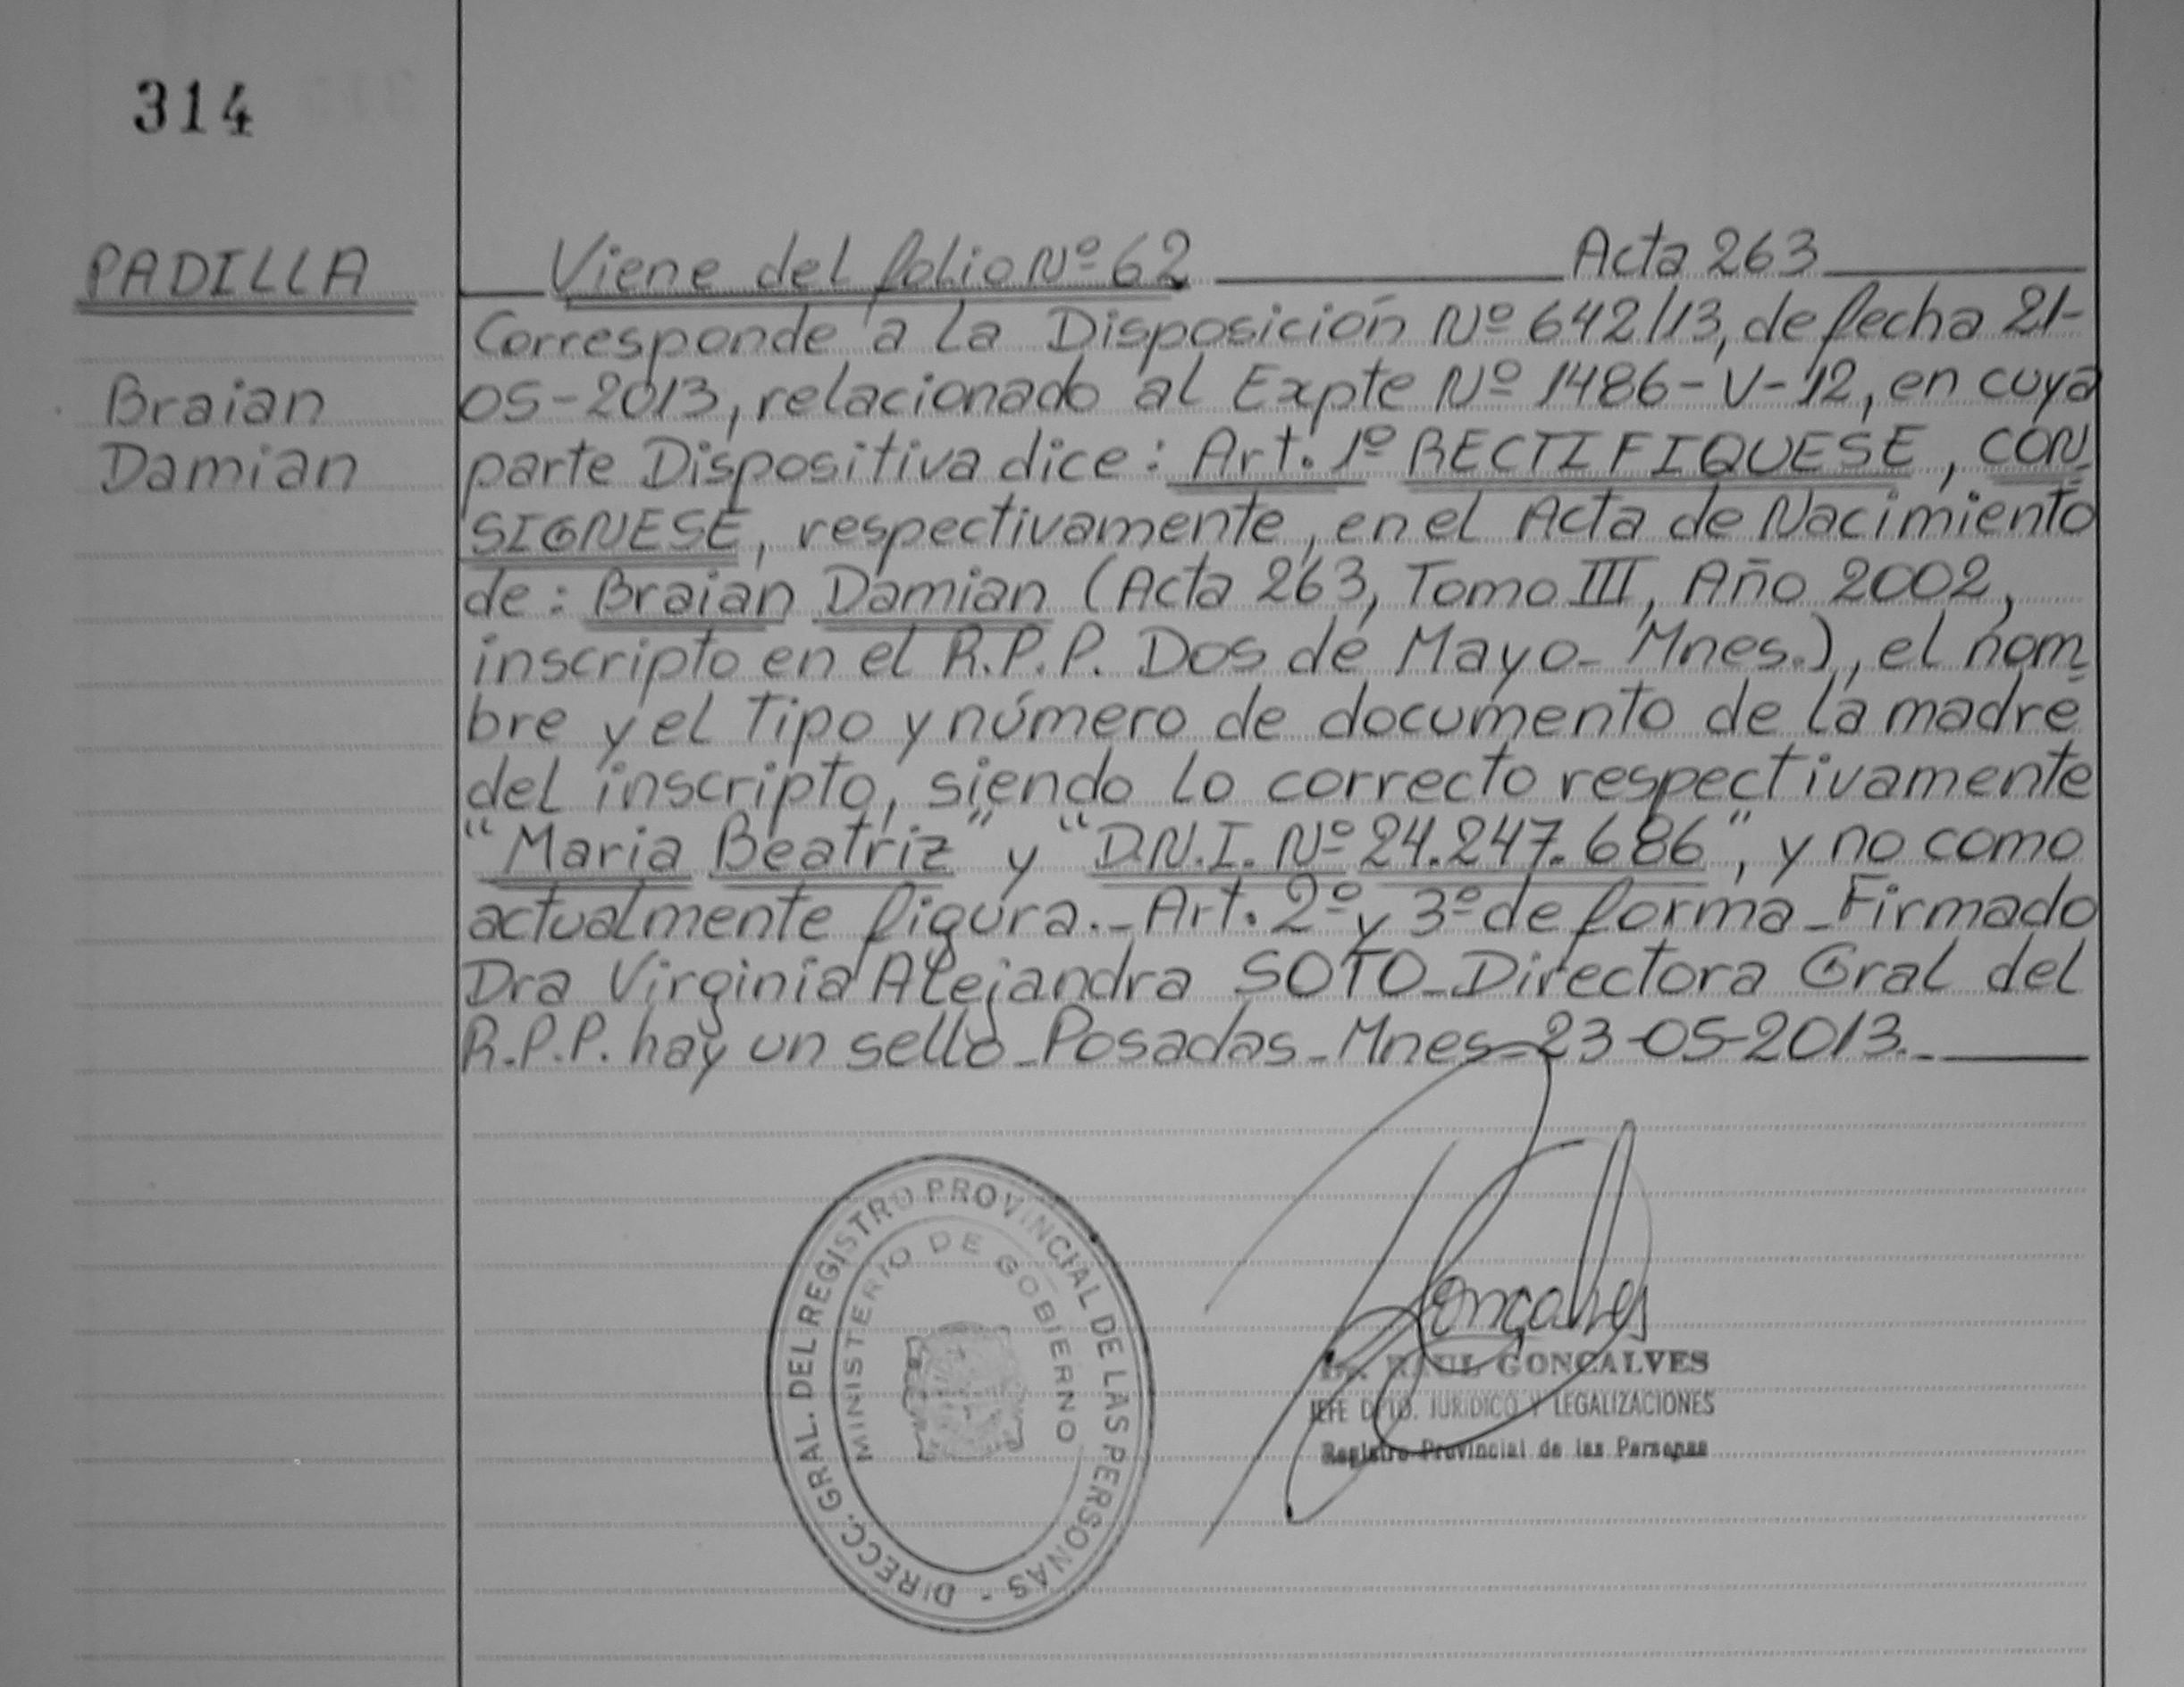 314
PADILLA
Braian
Damian
Viene del folio Nº 62 Acta 263
Corresponde a la Disposición Nº 642/13, de fecha 21-
05-2013, relacionado al Expte Nº 1486-V-12, en cuya
parte Dispositiva dice: Art. 1º RECTIFIQUESE, CON
SIGNESE, respectivamente, en el Acta de Nacimiento
de: Braian Damian (Acta 263, Tomo III, Año 2002,
inscripto en el R.P.P. Dos de Mayo- Mnes.), el nom
bre y el tipo y número de documento de la madre
del inscripto, siendo lo correcto respectivamente
"Maria Beatriz" y "D.N.I. Nº 24.247.686", y no como
actualmente figura.- Art. 2º y 3º de forma - Firmado
Dra Virginia Alejandra SOTO - Directora Gral del
R.P.P. hay un sello - Posadas - Mnes - 23-05-2013.-
DIRECC. GRAL. DEL REGISTRO PROVINCIAL DE LAS PERSONAS -
MINISTERIO DE GOBIERNO
Goncalves
Dr. RAUL GONCALVES
JEFE DPTO. JURIDICO Y LEGALIZACIONES
Registro Provincial de las Personas